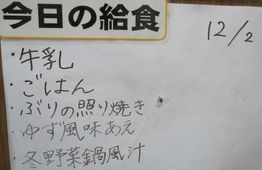 今日の給食
12/2
・牛乳
・ごはん
・ぶりの照り焼き
・ゆず風味あえ
・冬野菜鍋風汁